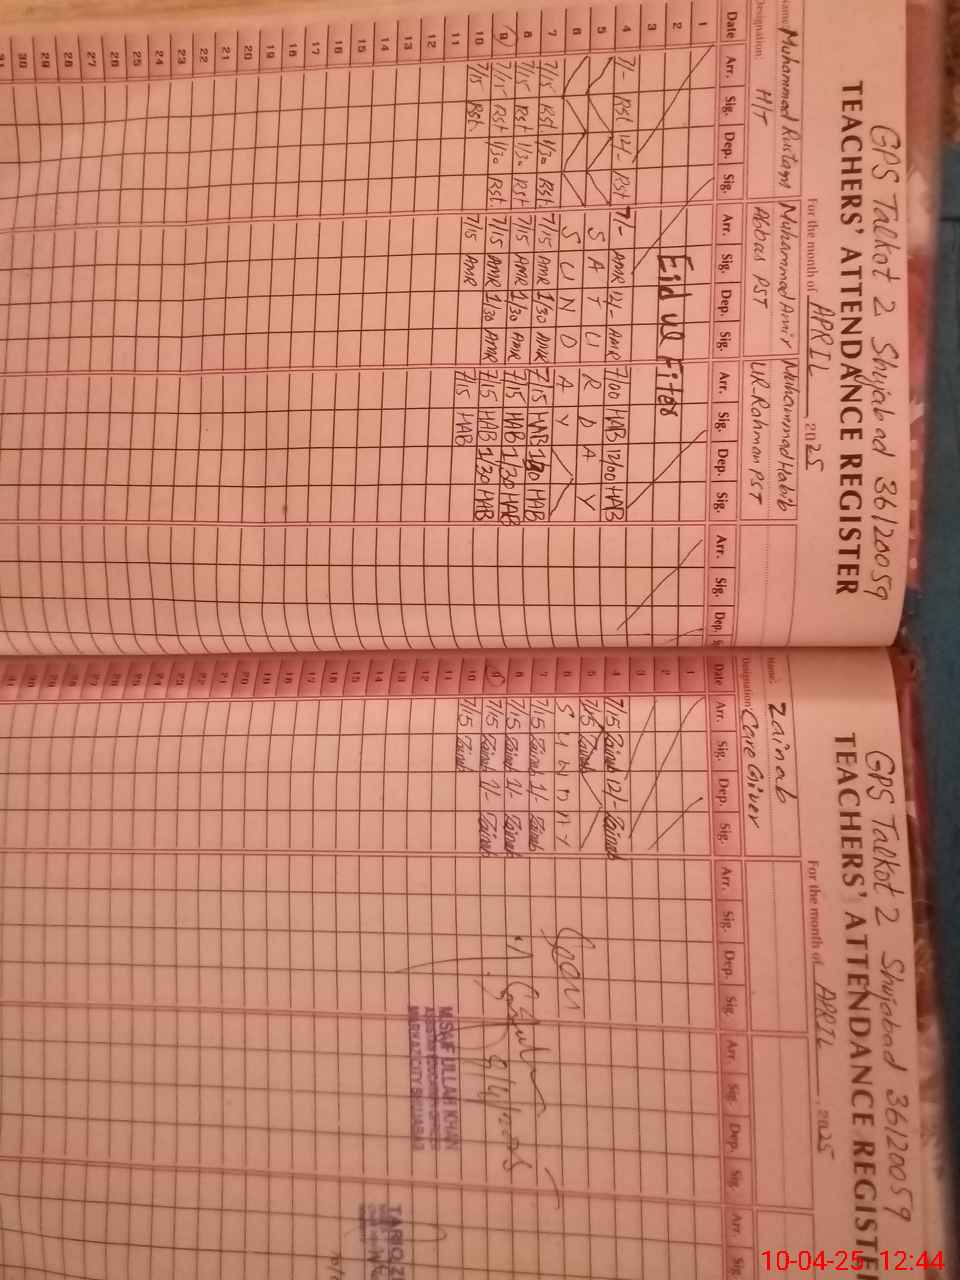 GPS Talkot 2 Shujabad 36120059
TEACHERS' ATTENDANCE REGISTER
For the month of APRIL, 2025
Name: Muhammad Rustam Muhammad Amir Muhammad Habib
Designation: H/T Abbas PST UR-Rahman PST
Date Arr. Sig. Dep. Sig. Arr. Sig. Dep. Sig. Arr. Sig. Dep. Sig. Arr. Sig. Dep. S
1
2 Eid ul Fiter
3
4 7/- Rst 12/- Rst 7/- AMR 12/- AMR 7/00 HAB 12/00 HAB
5 S A T U R D A Y
6 S U N D A Y
7 7/15 Rst 1/30 Rst. 7/15 AMR 1/30 AMR 7/15 HAB 1/30 HAB
8 7/15 Rst 1/30 Rst 7/15 AMR 1/30 AMR 7/15 HAB 1/30 HAB
9 7/15 Rst 1/30 Rst. 7/15 AMR 1/30 AMR 7/15 HAB 1/30 HAB
10 7/15 Rst. 7/15 AMR 7/15 HAB
11
12
13
14
15
16
17
18
19
20
21
22
23
24
25
26
27
28
29
30
31
GPS Talkot 2 Shujabad 36120059
TEACHERS' ATTENDANCE REGISTE
For the month of APRIL, 2025
Name: Zainab
Designation: Care Giver
Date Arr. Sig. Dep. Sig. Arr. Sig. Dep. Sig. Arr. Sig. Dep. Sig. Arr. Sig
1
2
3
4 7/15 Zainab 12/- Zainab
5 7/15 Zainab
6 S U N D A Y
7 7/15 Zainab 1/- Zainab
8 7/15 Zainab 1/- Zainab
9 7/15 Zainab 1/- Zainab
10 7/15 Zainab
11
12
13
14
15
16
17
18
19
20
21
22
23
24
25
26
27
28
29
30
31
Seen
9/4/2025
M.SAIF ULLAH KHAN
ASSISTANT EDUCATION OFFICER
MARKAZ CITY SHUJABAD
TARIQ Z
10-04-25 12:44